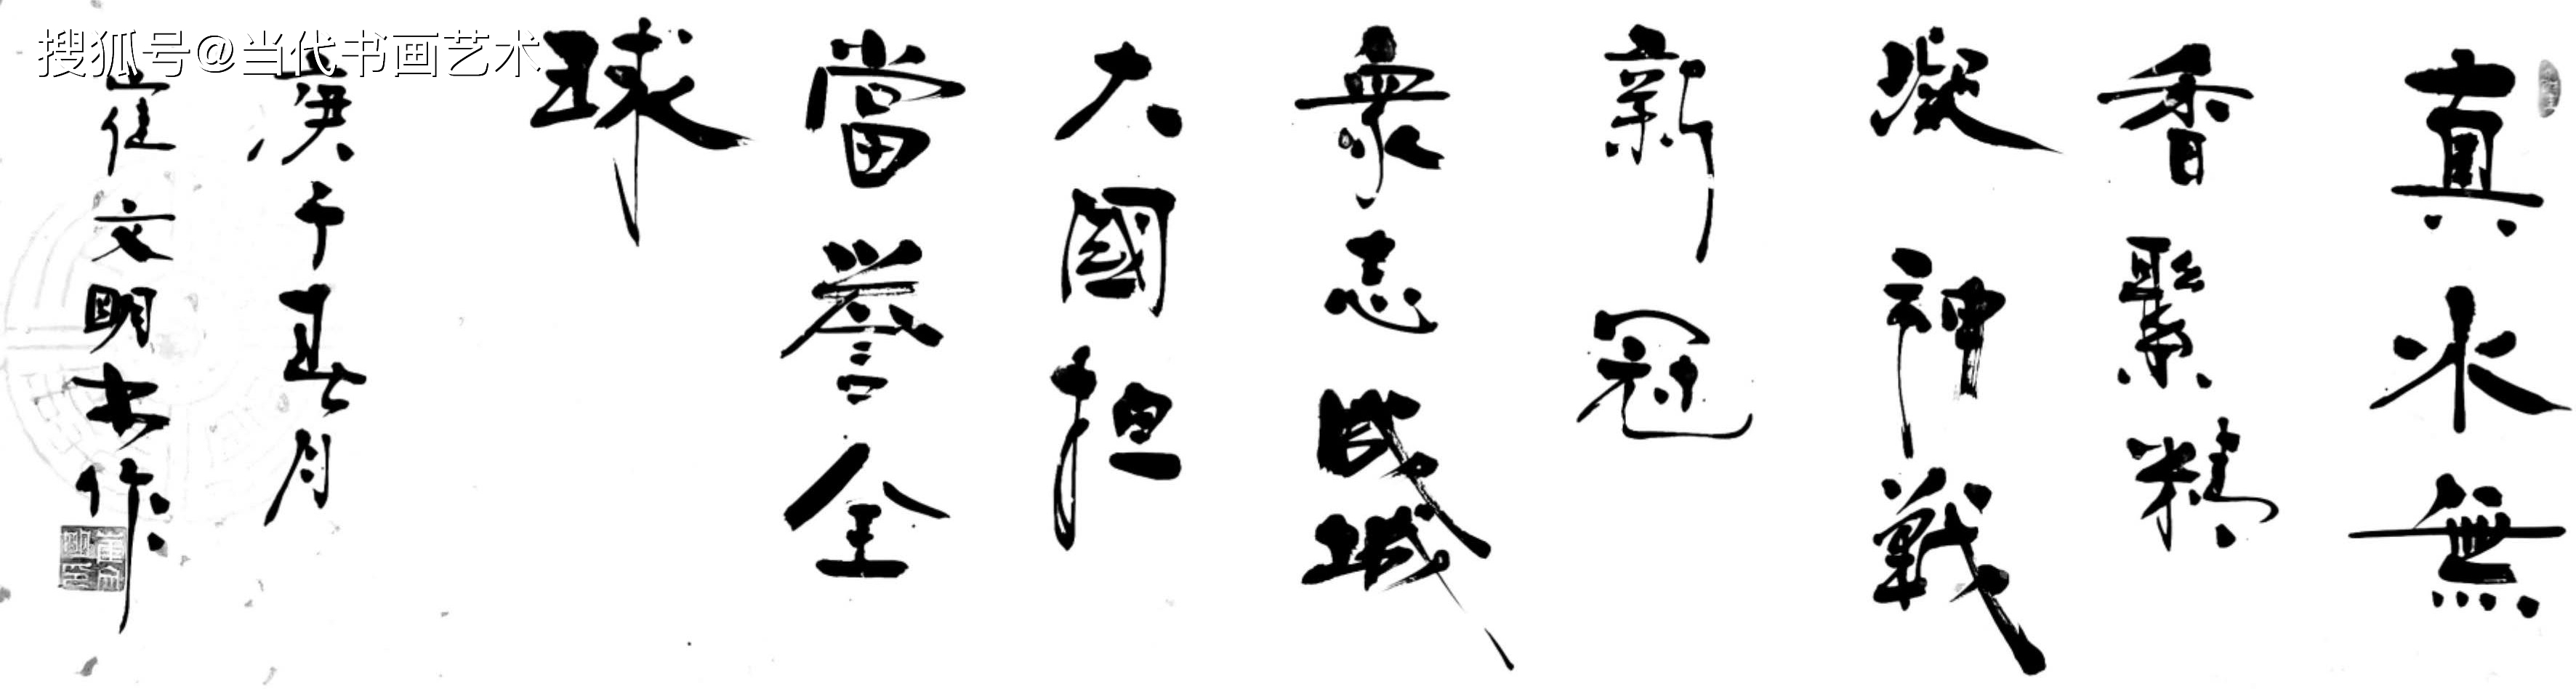 真水無
香聚精
凝神戰
新冠
衆志成城
大國担
當譽全
球
庚子春月
崔文明书作
搜狐号@当代书画艺术